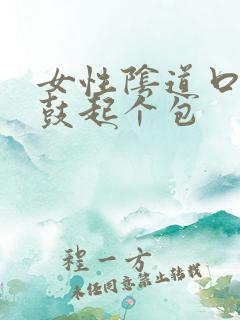 女性陰道口
鼓起个包
程一方
未经同意禁止转载